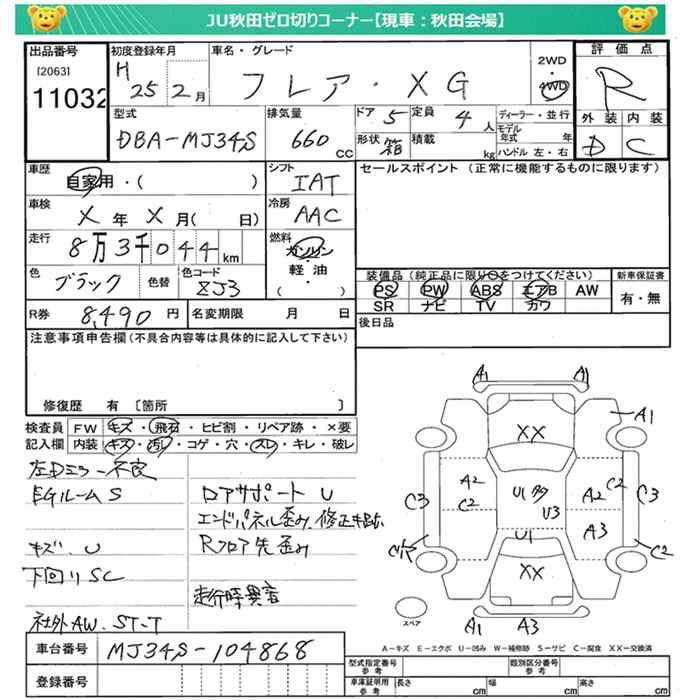 JU秋田ゼロ切りコーナー【現車：秋田会場】
出品番号 初度登録年月 車名・グレード 2WD 4WD 評価点
[2063] 11032 H 25 2月 フレア・XG R
型式 排気量 ドア 5 定員 4人 ディーラー・並行 外装 内装
DBA-MJ34S 660 CC 形状 箱 積載 kg モデル年式 年 ハンドル 左・右 D C
車歴 自家用・( ) シフト IAT セールスポイント (正常に機能するものに限ります)
車検 X年X月( 日) 冷房 AAC
走行 8万3千044km 燃料 ガソリン・軽油・( )
色 ブラック 色替 色コード ZJ3 装備品(純正品に限り○をつけてください) 新車保証書
PS PW ABS エアB AW 有・無
SR ナビ TV カワ
R券 8,490円 名変期限 月 日 後日品
注意事項申告欄(不具合内容等は具体的に記入して下さい)
修復歴 有 〔箇所 〕
検査員記入欄 FW キズ・飛石・ヒビ割・リペア跡・×要
内装 キズ・汚レ・コゲ・穴・スレ・キレ・破レ
左Dミラー不良
EGルームS ロアサポート U
エンドパネル歪み、修正
キズ、U Rフロア先歪み
下回りSC
走行時異音
社外AW、ST-T
A1 A1
A1
XX
A2 C2 C3 U1 U3 A2 C2 C3
A3
U1 C2
XX
スペア
A1 A3
A-キズ E-エクボ U-凹み W-補修跡 S-サビ C-腐食 XX-交換済
車台番号 MJ34S-104868
登録番号
型式指定番号 参考 類別区分番号 参考
車庫証明用 参考 長さ cm 幅 cm 高さ cm